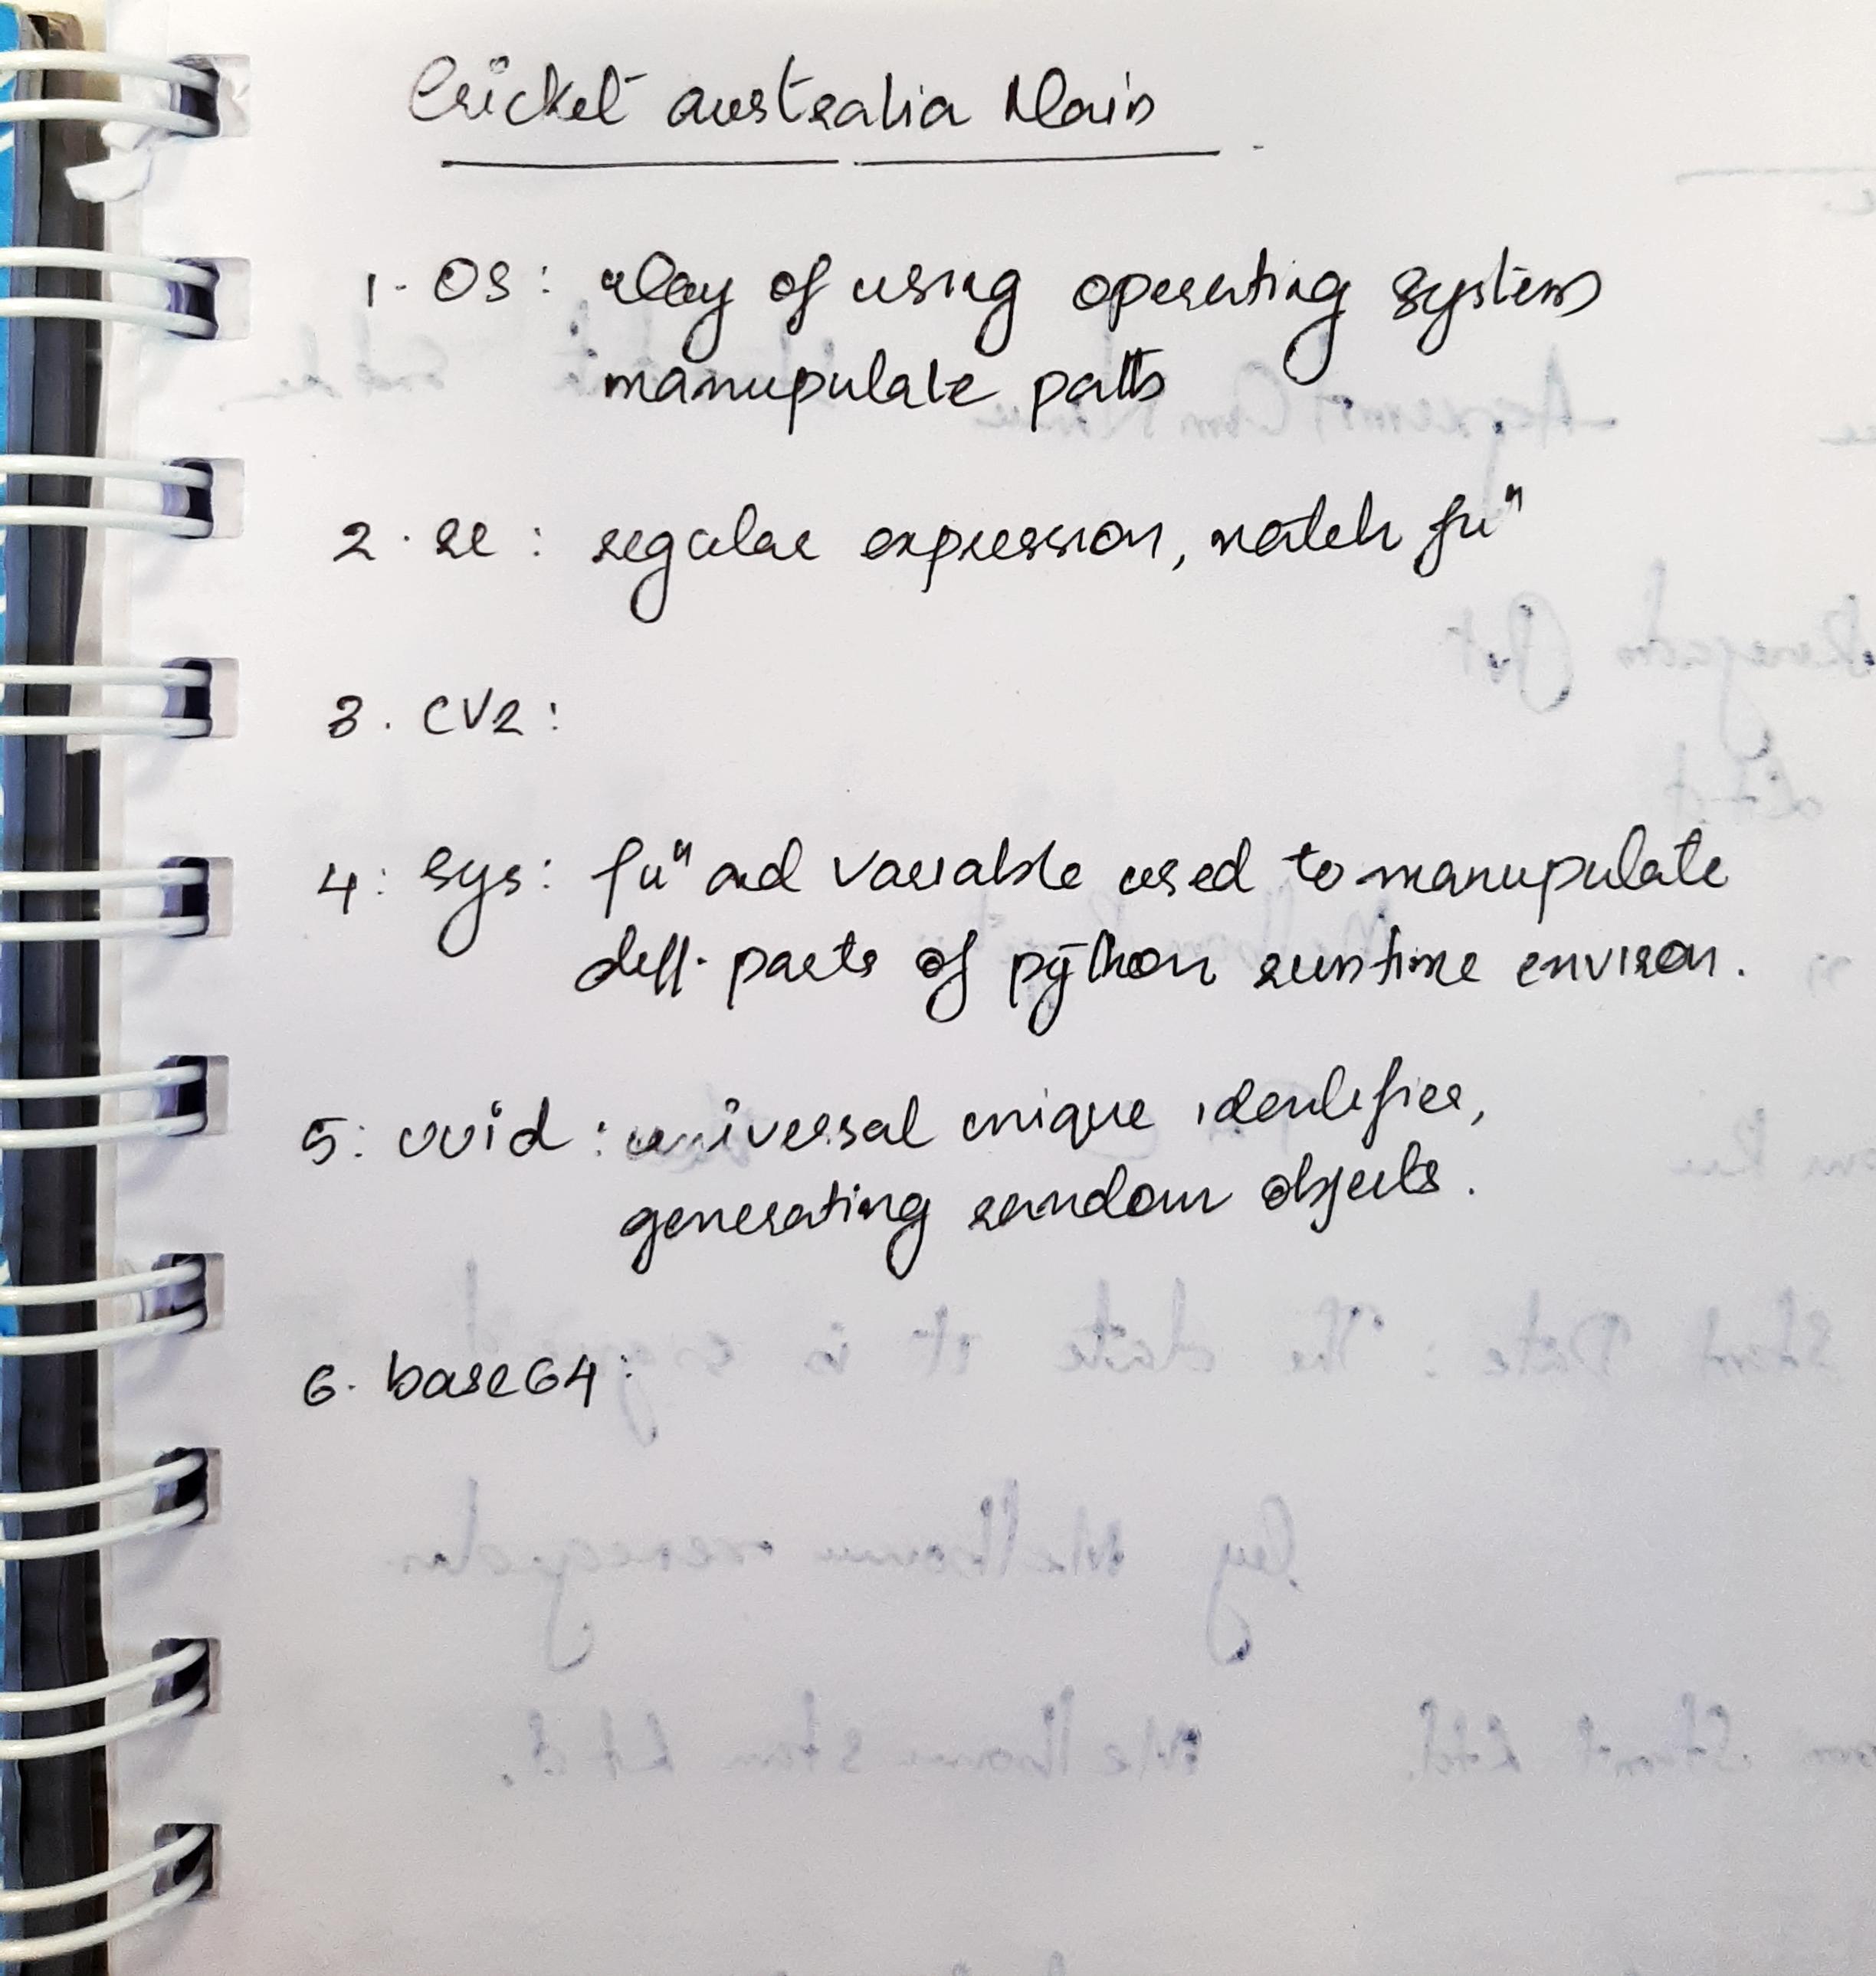 Cricket australia Main
1. OS: way of using operating system
manupulate paths
2. re: regular expression, match fuⁿ
3. CV2:
4: sys: fuⁿ and variable used to manupulate
diff. parts of python runtime environ.
5: uuid: universal unique identifier,
generating random objects.
6. base64: